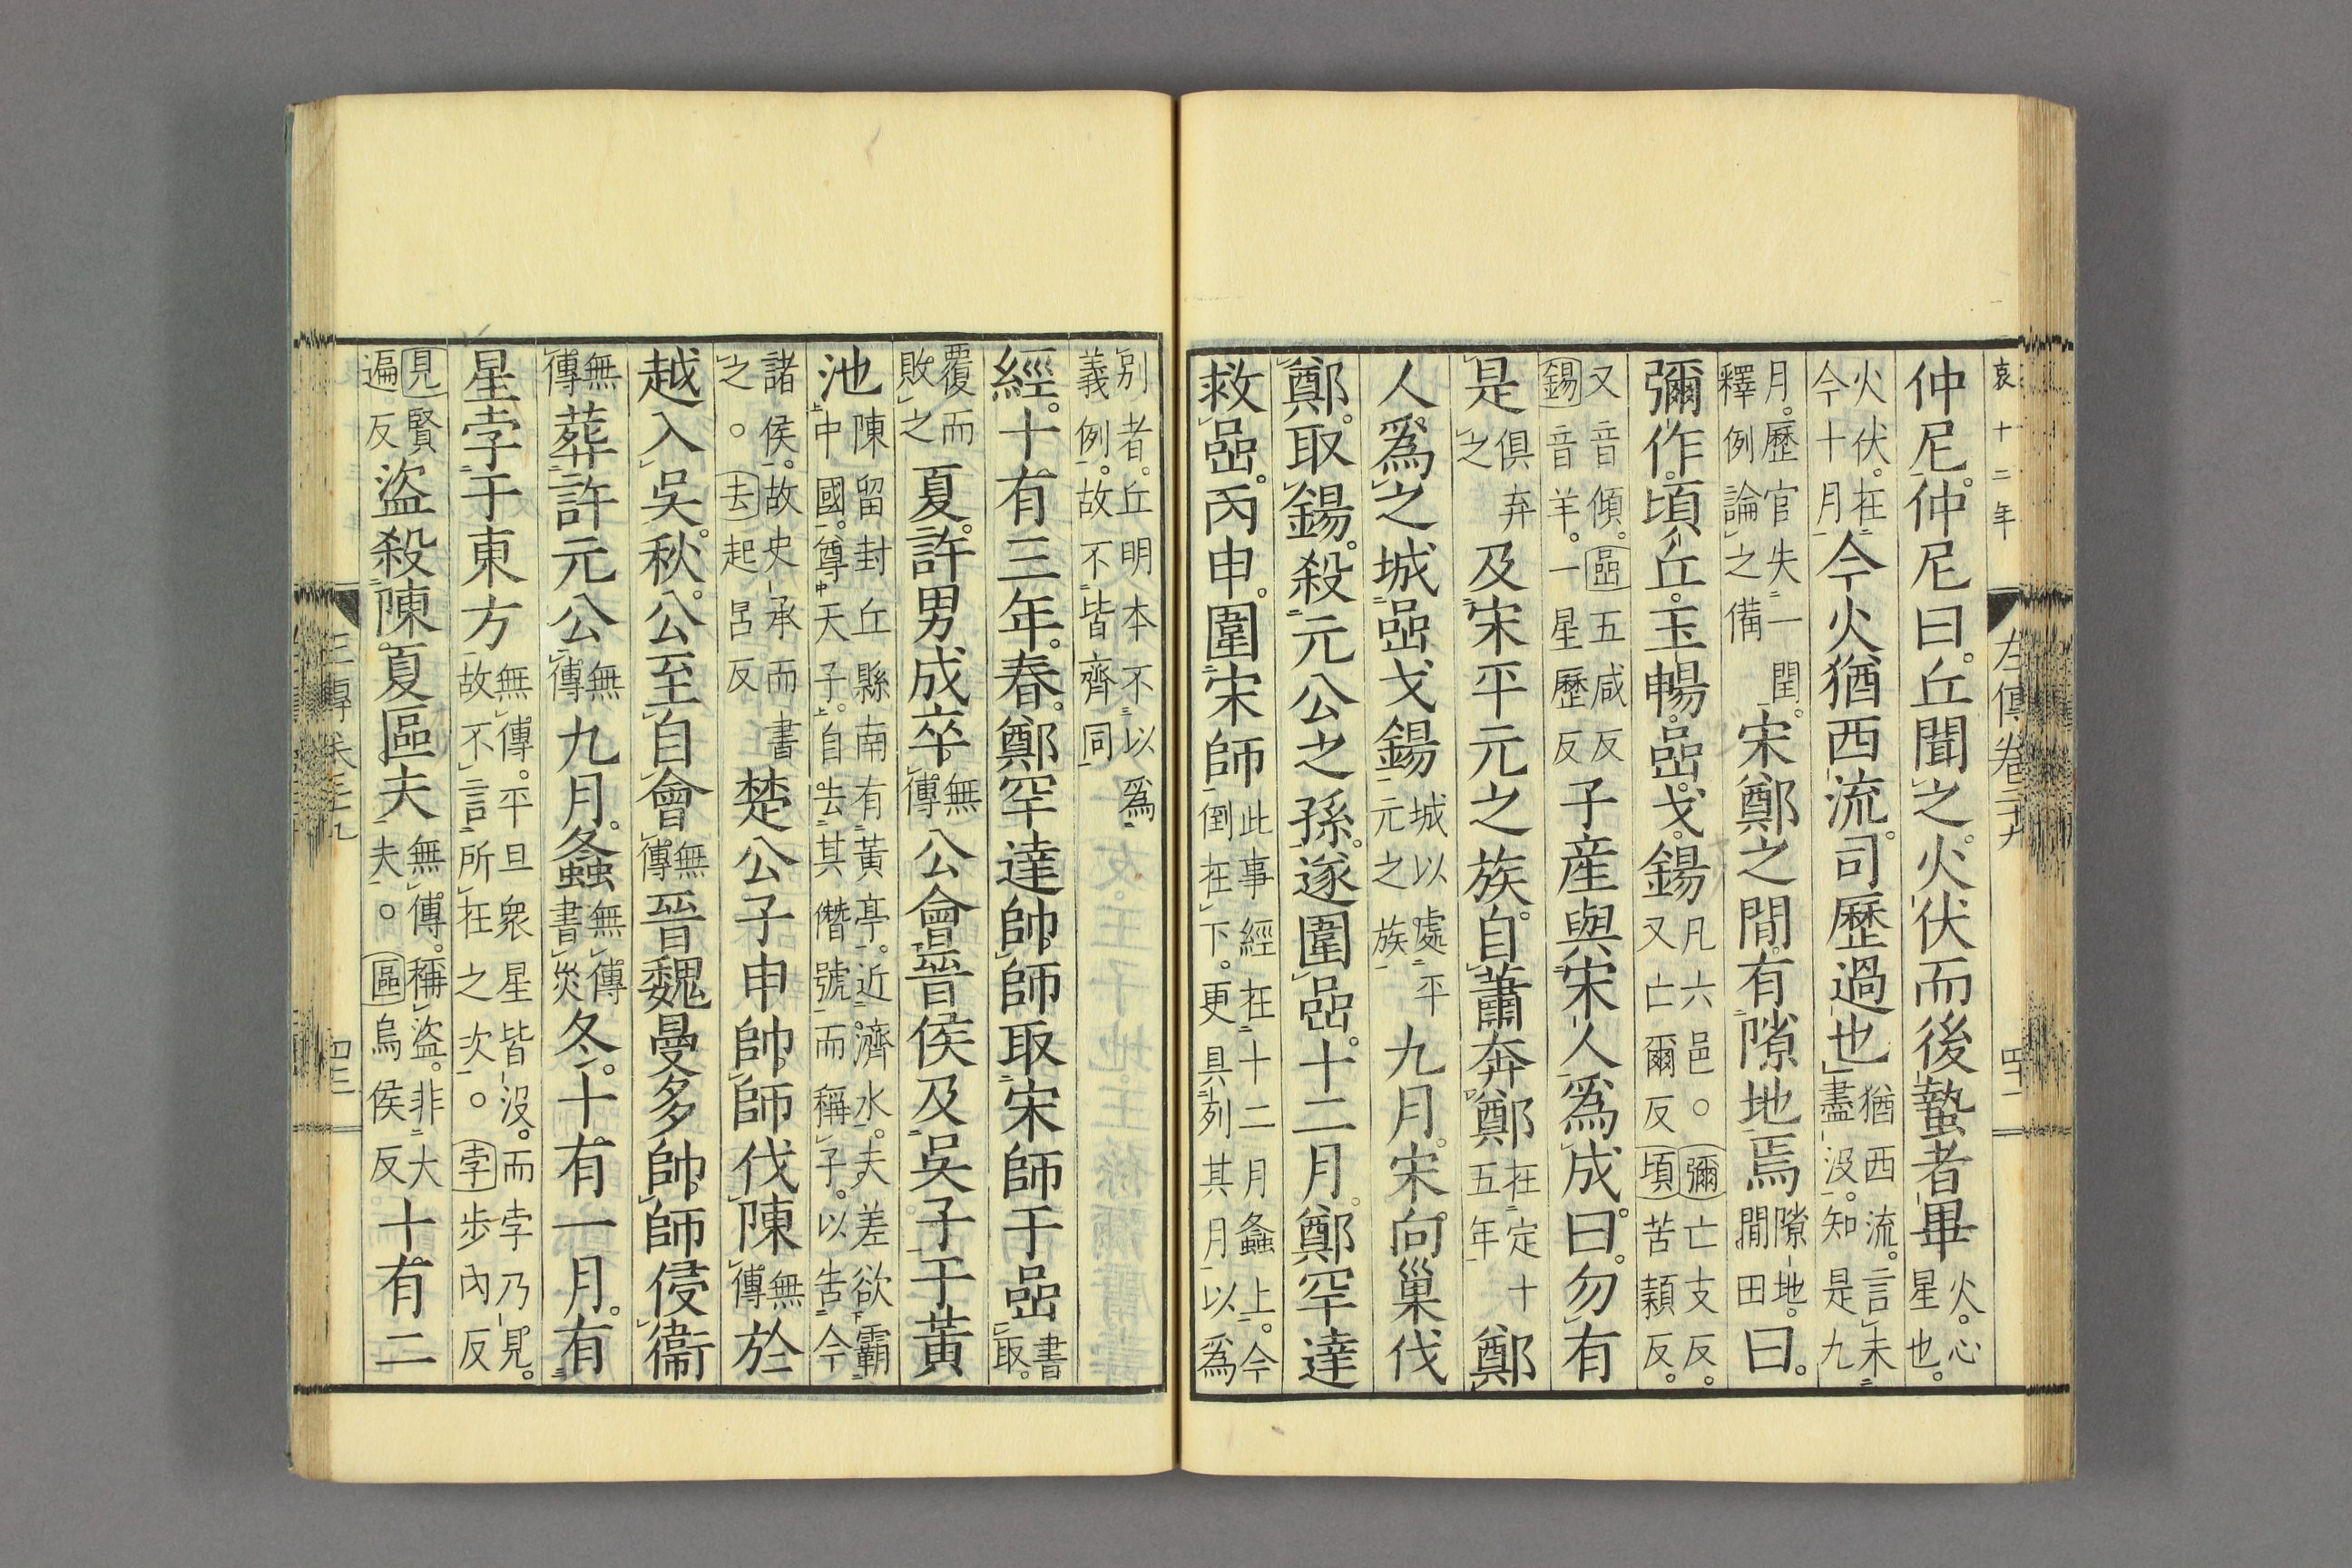 哀十二年
左傳卷二十九
仲尼。仲尼曰。丘聞之。火伏而後蟄者畢火。心星也。
火伏。在今十月今火猶西流。司歷過也猶西流。言未盡沒。知是九
月。歷官失一閏。釋例論之備宋鄭之間。有隙地焉隙地。閒田曰。
彌作。頃丘。玉暢。嵒。戈。鍚凡六邑。○彌亡支反。又亡爾反頃苦潁反。
又音傾。嵒五咸反鍚音羊。一星歷反子産與宋人爲成。曰。勿有
是俱弃之及宋平元之族。自蕭奔鄭在定十五年鄭
人。爲之城嵒戈鍚城以處平元之族九月。宋。向巢伐
鄭。取鍚。殺元公之孫。遂圍嵒。十二月。鄭罕達
救嵒。丙申。圍宋師此事經在十二月螽上。今倒在下。更具列其月以爲
別者。丘明本不以爲義例。故不皆齊同
經。十有三年。春。鄭罕達帥師取宋師于嵒書取。
覆而敗之夏。許男成卒無傳公會晉侯及吳子于黃
池陳留封丘縣南有黃亭。近濟水。夫差欲霸中國。尊天子。自去其僭號而稱子。以告今
諸侯。故史承而書之。○去起呂反楚公子申帥師伐陳無傳於
越入吳。秋。公至自會無傳晉魏曼多帥師侵衞
無傳葬許元公無傳九月。螽無傳書災冬。十有一月。有
星孛于東方無傳。平旦衆星皆沒。而孛乃見。故不言所在之次。○孛步內反
見賢遍反盜殺陳夏區夫無傳。稱盜。非大夫。○區烏侯反十有二